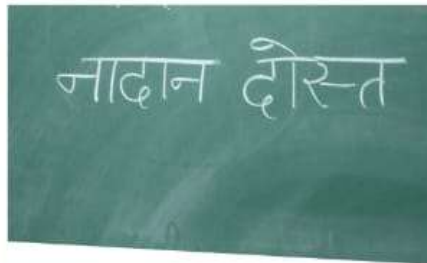 नादान दोस्त